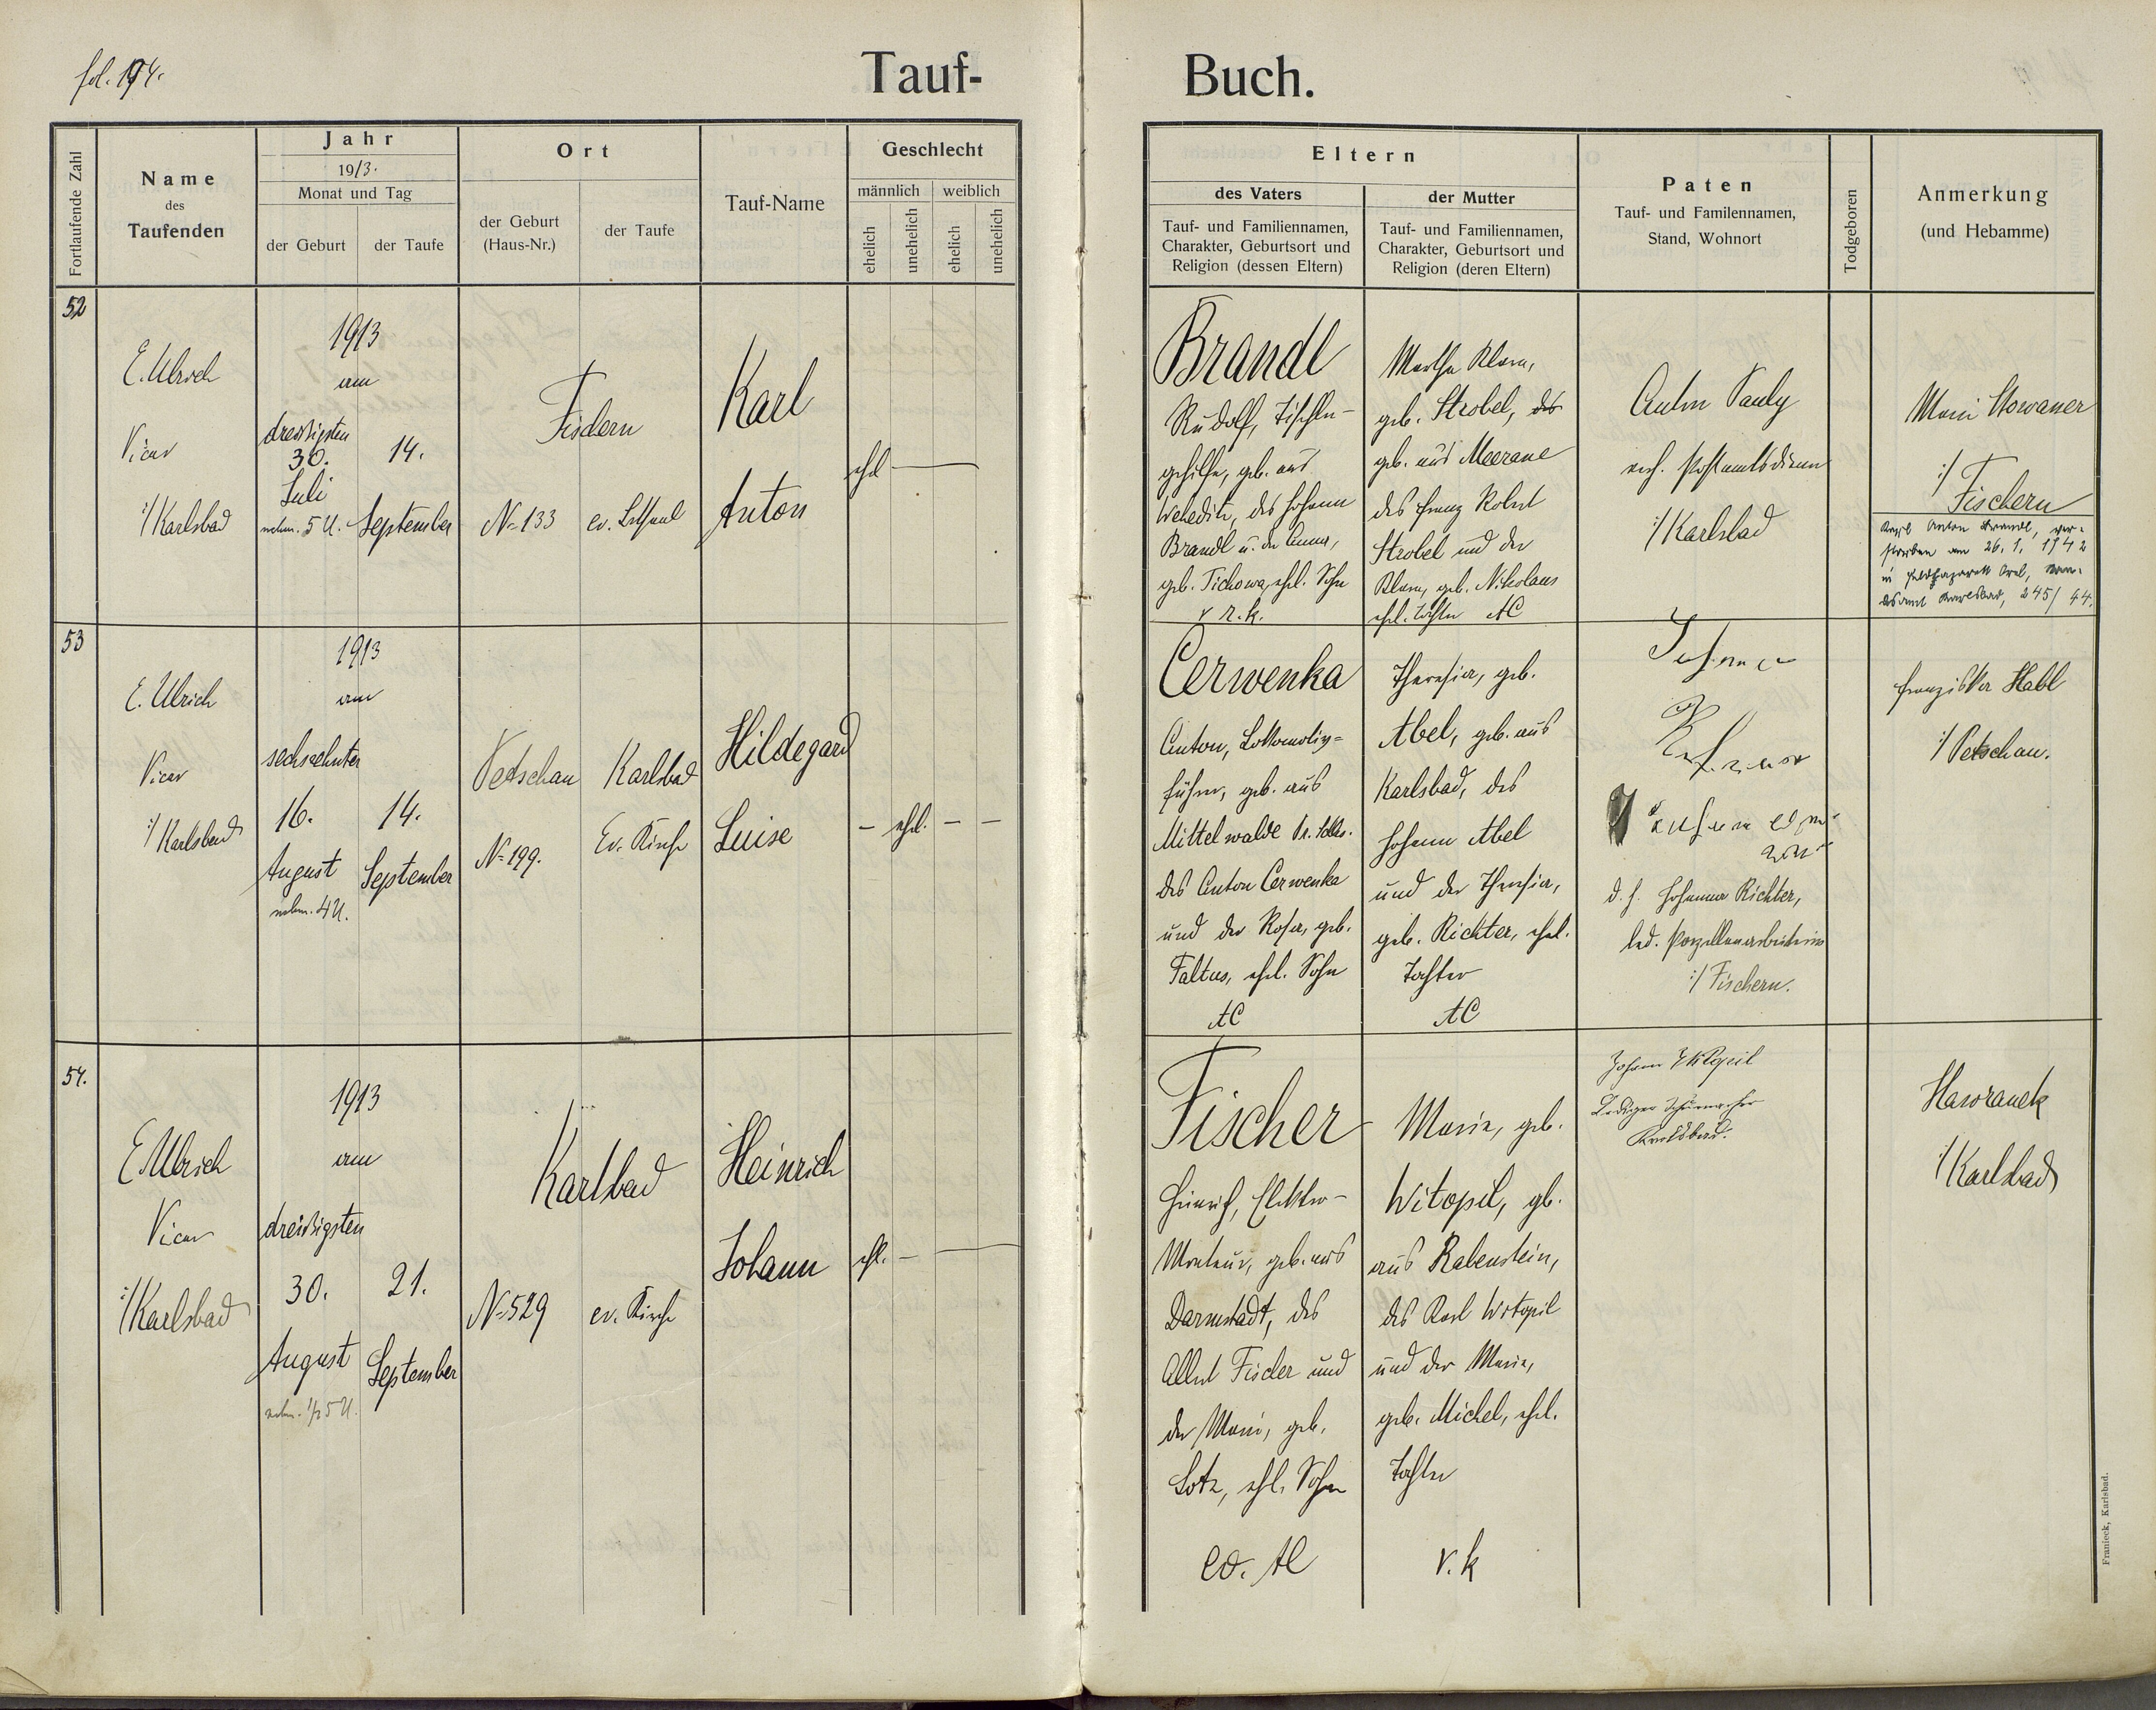 fol. 194.
Tauf-
Buch.
Fortlaufende Zahl
Name
des
Taufenden
Jahr
1913.
Monat und Tag
der Geburt
der Taufe
Ort
der Geburt
(Haus-Nr.)
der Taufe
Tauf-Name
Geschlecht
männlich
weiblich
ehelich
unehelich
ehelich
unehelich
Eltern
des Vaters
Tauf- und Familiennamen,
Charakter, Geburtsort und
Religion (dessen Eltern)
der Mutter
Tauf- und Familiennamen,
Charakter, Geburtsort und
Religion (deren Eltern)
Paten
Tauf- und Familennamen,
Stand, Wohnort
Todgeboren
Anmerkung
(und Hebamme)
52
E. Ulrich
Vicar
:/Karlsbad
1913
am
dreißigsten
30.
Juli
nachm. 5 U.
14.
September
Fischern
No 133
ev. Betsaal
Karl
Anton
ehl
Brandl
Rudolf, Tischler-
gehilfe, geb. aus
Wehediz, des Johann
Brandl u. der Anna,
geb. Tichowa, ehel. Sohn
r. k.
Martha Klara,
geb. Strobel, des
geb. aus Meerane
des Franz Robert
Strobel und der
Klara, geb. Nikolaus
ehel. Tochter AC
Anton Pauly
Postamtsdiener
:/Karlsbad
Marie Nowaner
:/
Fischern
Karl Anton Brandl, ver-
storben am 26. 1. 1942
in Feldlazarett Orel, Stan-
desamt Karlsbad, 245/44.
53
E. Ulrich
Vicar
:/Karlsbad
1913
am
sechzehnten
16.
August
nachm. 4 U.
14.
September
Petschau
No 199.
Karlsbad
Ev. Kirche
Hildegard
Luise
– ehel. – –
Cerwenka
Anton, Lokomotiv-
führer, geb. aus
Mittelwalde Pr. Schles.
des Anton Cerwenka
und der Rosa, geb.
Faltus, ehel. Sohn
AC
Theresia, geb.
Abel, geb. aus
Karlsbad, des
Johann Abel
und der Theresia,
geb. Richter, ehel.
Tochter
AC
Johanna
d. h. Johanna Richter,
led. Porzellanarbeiterin
:/Fischern.
Franziska Habl
:/Petschau.
54.
E. Ulrich
Vicar
:/Karlsbad
1913
am
dreißigsten
30.
August
nachm. 1/2 5 U.
21.
September
Karlsbad
No 529
ev. Kirche
Heinrich
Johann
ehl. –
Fischer
Heinrich, Elektro-
Monteur, geb. aus
Darmstadt, des
Albert Fischer und
der Marie, geb.
Lotz, ehl. Sohn
ev. AC
Marie, geb.
Witopil, gb.
aus Rabenstein,
des Karl Witopil
und der Marie,
geb. Michel, ehel.
Tochter
r. k
Johann Witopil
Lediger Schumacher
Karlsbad.
Haworanek
:/Karlsbad
Franieck, Karlsbad.